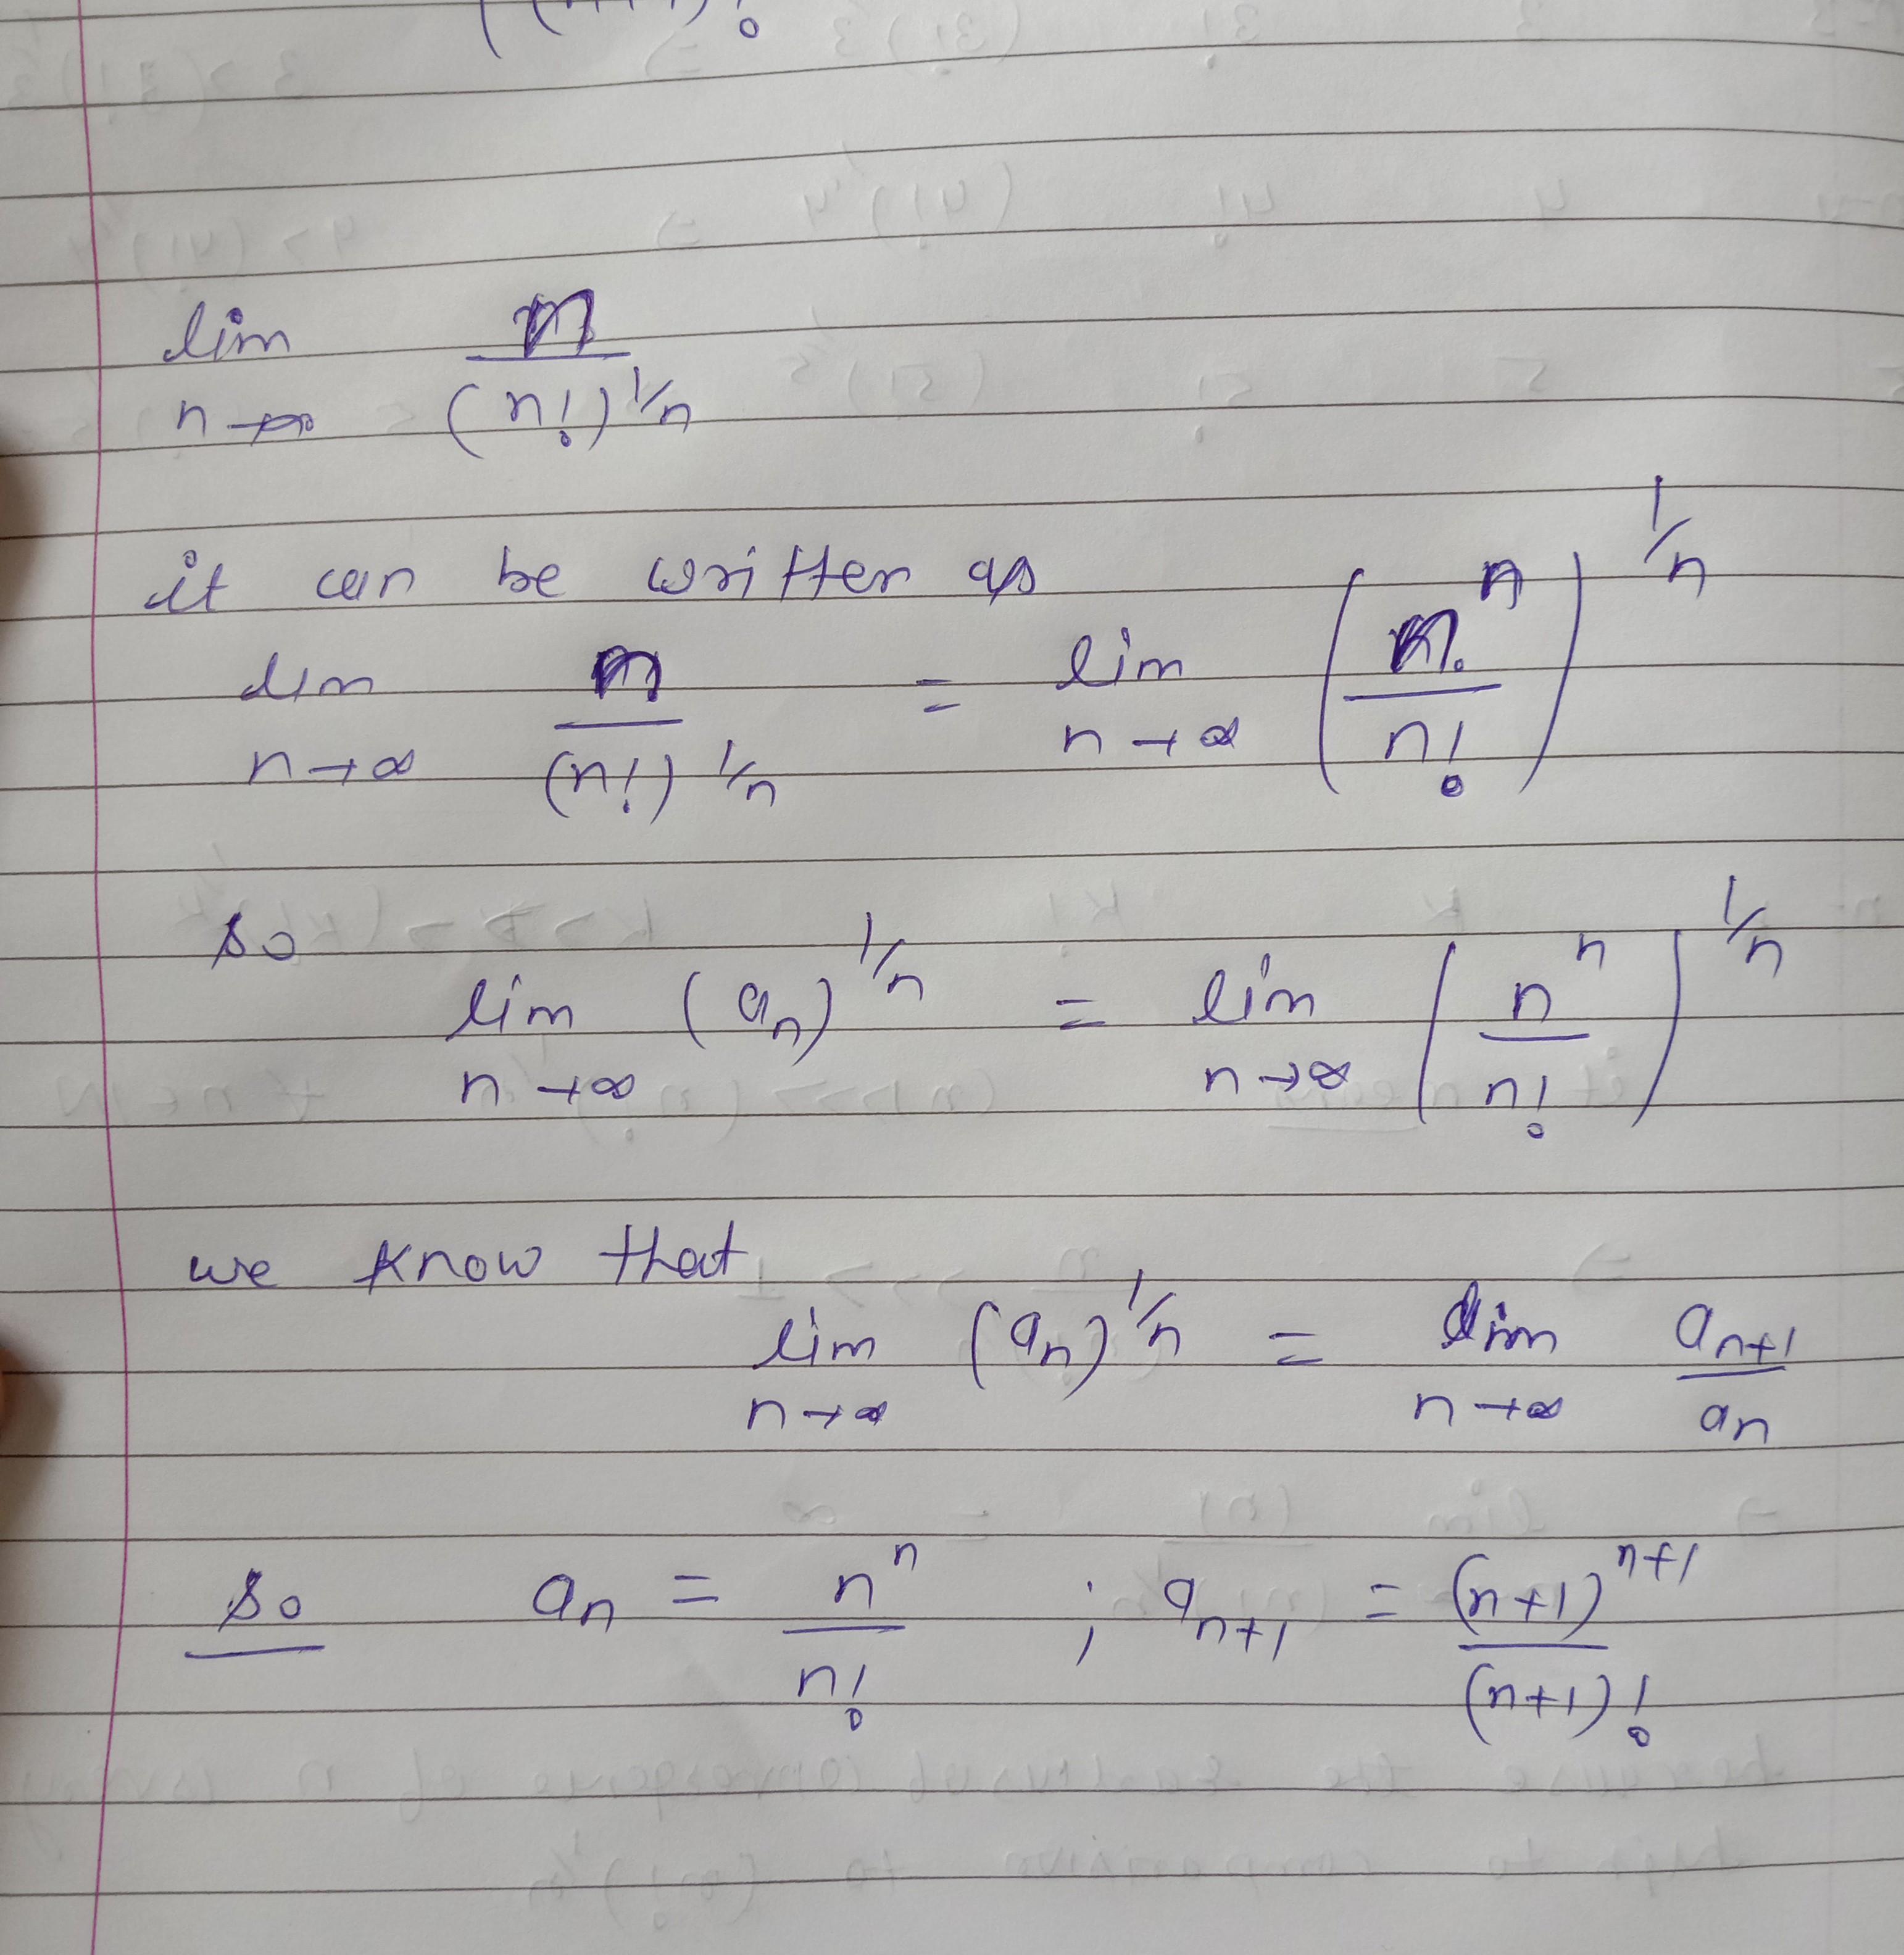 lim n / (n!)^1/n
n→∞
it can be written as
lim n / (n!)^1/n = lim (n^n / n!)^1/n
n→∞ n→∞
so
lim (an)^1/n = lim (n^n / n!)^1/n
n→∞ n→∞
we know that
lim (an)^1/n = lim an+1 / an
n→∞ n→∞
so an = n^n / n! ; an+1 = (n+1)^n+1 / (n+1)!